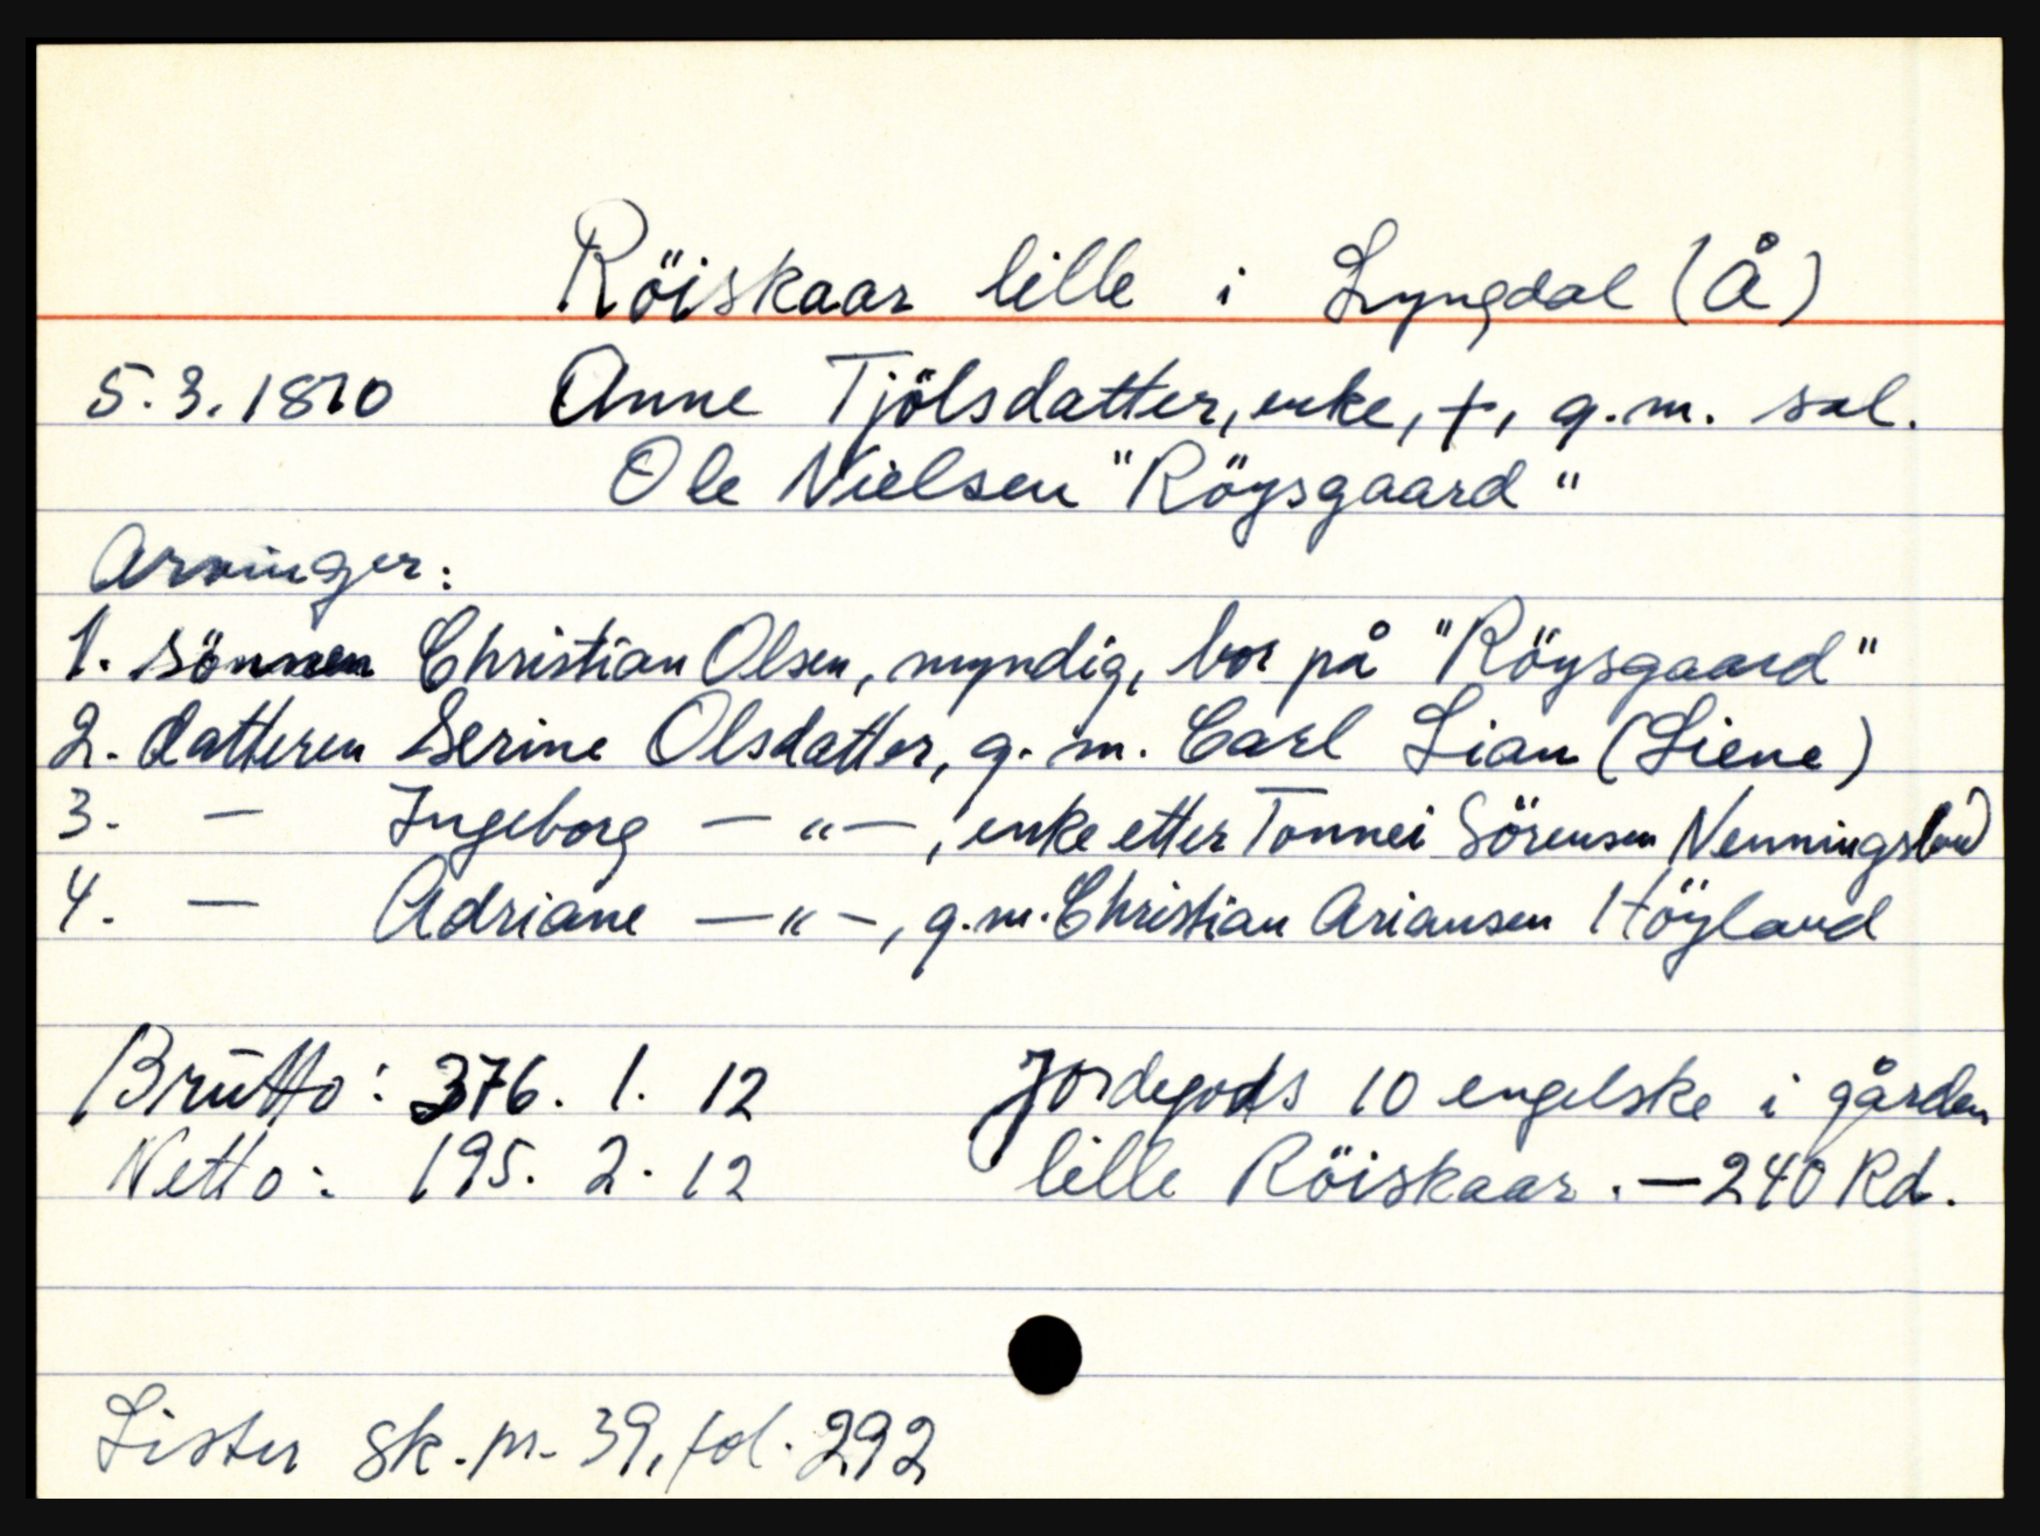 Röiskaar lille i Lyngdal (Å)
5.3.1810 Anne Tjölsdatter, enke, +, g.m. sal.
Ole Nielsen "Röysgaard"
Arvinger:
1. sönnen Christian Olsen, myndig, bor på "Röysgaard"
2. datteren Serine Olsdatter, g.m. Carl Lian (Liene)
3. — Ingeborg — " —, enke etter Tönnei Sörensen Nenningsland
4. — Adriane — " —, g.m. Christian Ariansen Höyland
Brutto: 376. 1. 12 Jordegods 10 engelske i gården
Netto: 195. 2. 12 lille Röiskaar. — 240 Rd.
Lister sk.pr. 39, fol. 292